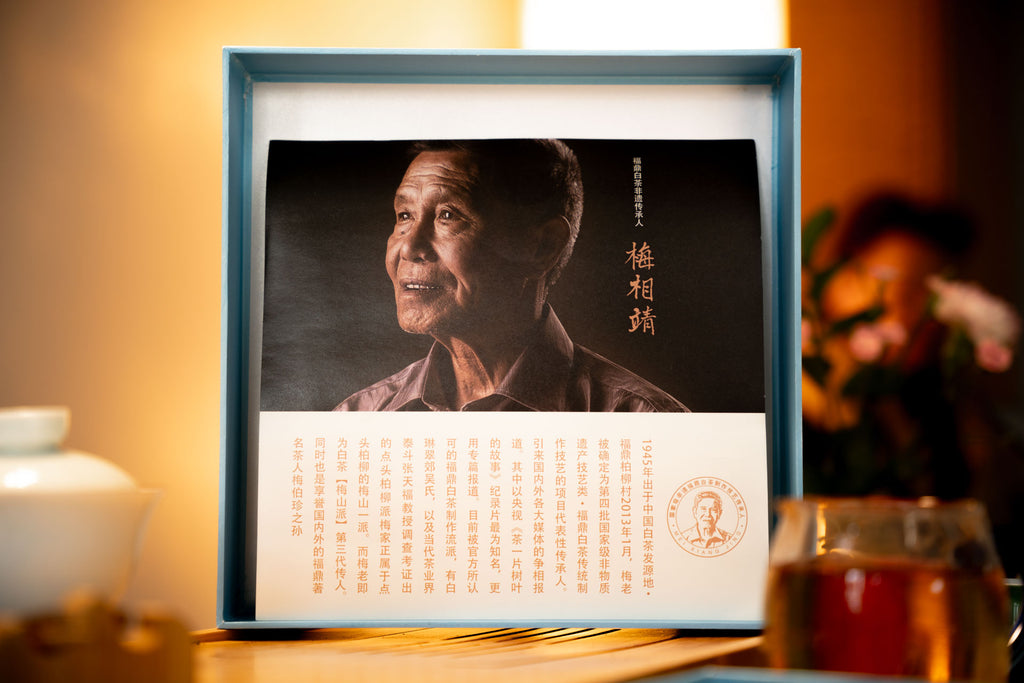 福鼎白茶非遗传承人
梅相靖
1945年出于中国白茶发源地·
福鼎柏柳村2013年1月，梅老
被确定为第四批国家级非物质
遗产技艺类·福鼎白茶传统制
作技艺的项目代表性传承人。
引来国内外各大媒体的争相报
道。其中以央视《茶一片树叶
的故事》纪录片最为知名，更
用专篇报道。目前被官方所认
可的福鼎白茶制作流派，有白
琳翠郊吴氏，以及当代茶业界
泰斗张天福教授调查考证出
的点头柏柳派梅家正属于点
头柏柳的梅山一派。而梅老即
为白茶【梅山派】第三代传人。
同时也是享誉国内外的福鼎著
名茶人梅伯珍之孙
MEI XIANG JING